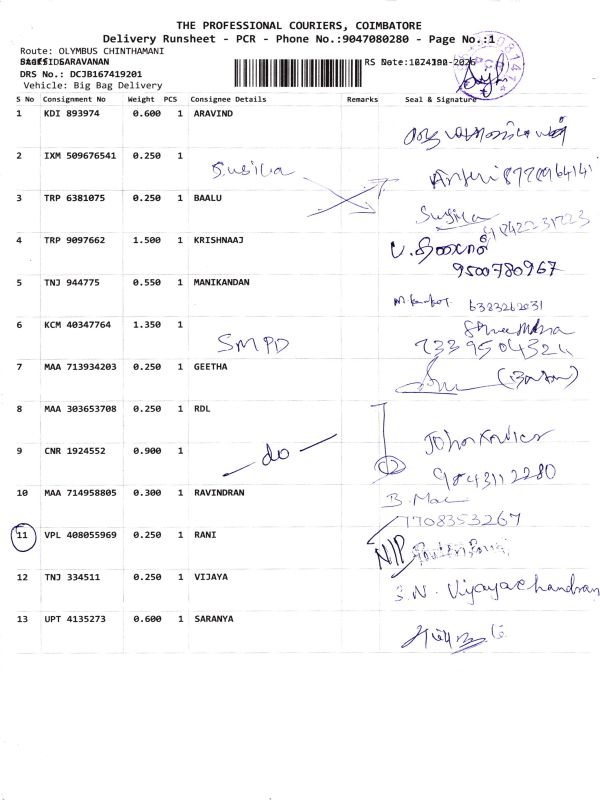 THE PROFESSIONAL COURIERS, COIMBATORE
Delivery Runsheet - PCR - Phone No.:9047080280 - Page No.:1
Route: OLYMBUS CHINTHAMANI
SARAVANAN
DRS No.: DCJB167419201
Vehicle: Big Bag Delivery
S No Consignment No Weight PCS Consignee Details Remarks Seal & Signature
1 KDI 893974 0.600 1 ARAVIND
2 IXM 509676541 0.250 1 Susila
3 TRP 6381075 0.250 1 BAALU Susila
4 TRP 9097662 1.500 1 KRISHNAAJ
9500780967
5 TNJ 944775 0.550 1 MANIKANDAN 6383262031
6 KCM 40347764 1.350 1 SMPD
7339504324
7 MAA 713934203 0.250 1 GEETHA
8 MAA 303653708 0.250 1 RDL
9 CNR 1924552 0.900 1 - do -
9843112280
10 MAA 714958805 0.300 1 RAVINDRAN
7708353267
11 VPL 408055969 0.250 1 RANI N/P
12 TNJ 334511 0.250 1 VIJAYA N. Vijayachandran
13 UPT 4135273 0.600 1 SARANYA